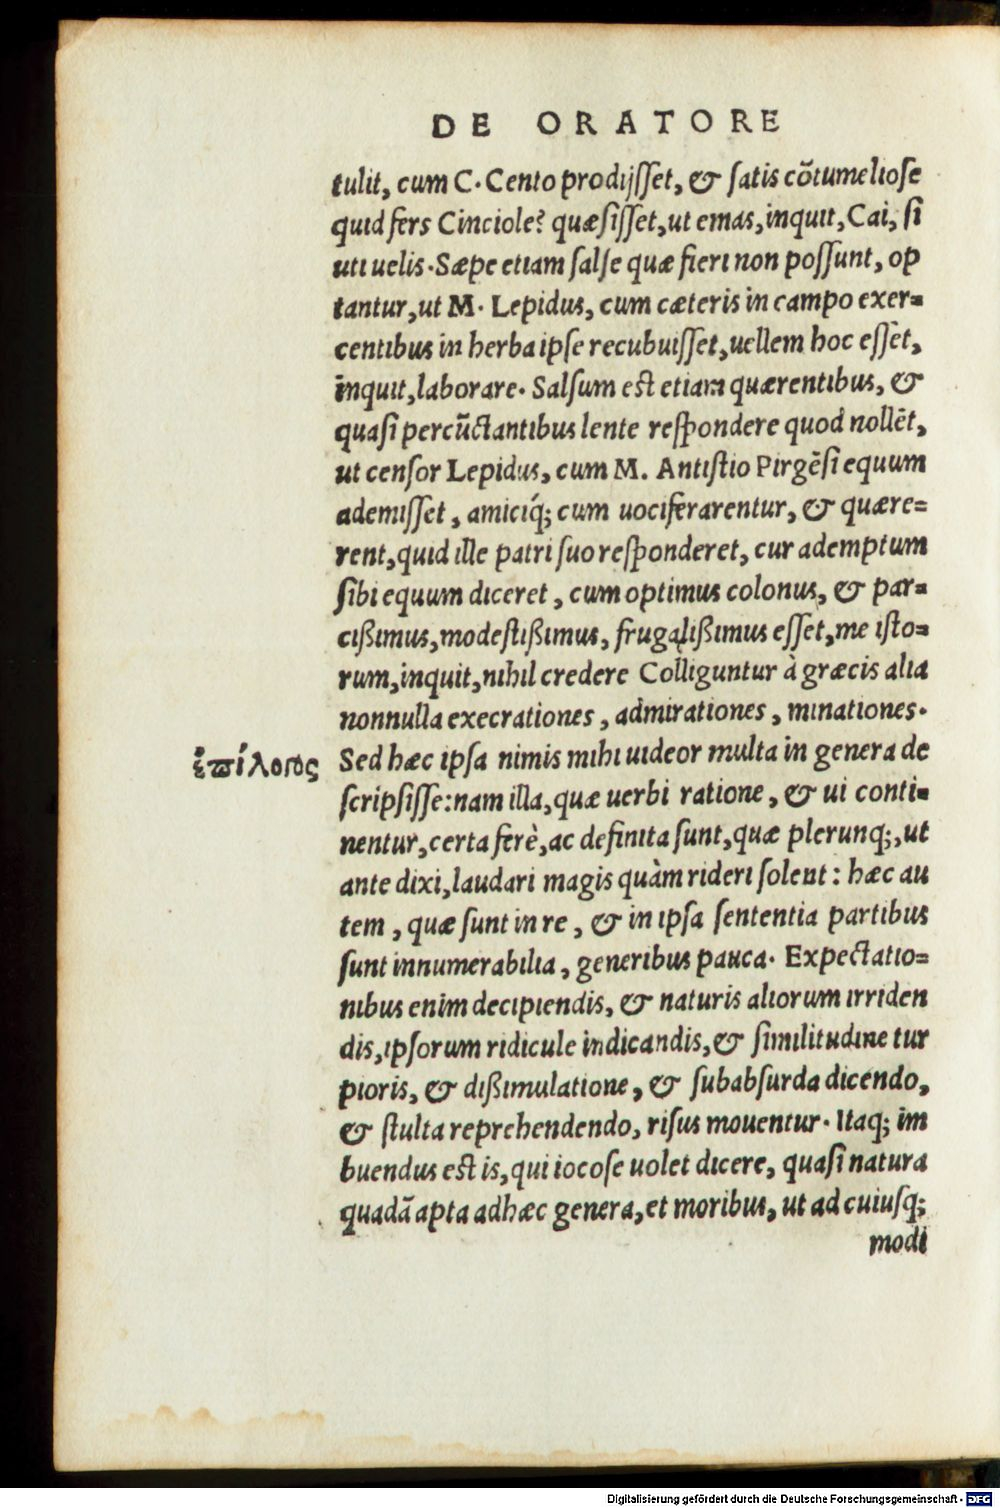 DE ORATORE
tulit, cum C. Cento prodijſſet, & ſatis cõtumelioſe
quid fers Cinciole? quæſiſſet, ut emas, inquit, Cai, ſi
uti uelis. Sæpe etiam ſalſe quæ fieri non poſſunt, op
tantur, ut M. Lepidus, cum cæteris in campo exer=
centibus in herba ipſe recubuiſſet, uellem hoc eſſet,
inquit, laborare. Salſum est etiam quærentibus, &
quaſi percũctantibus lente reſpondere quod nollẽt,
ut cenſor Lepidus, cum M. Antiſtio Pirgẽſi equum
ademiſſet, amiciq́; cum uociferarentur, & quære=
rent, quid ille patri ſuo reſponderet, cur ademptum
ſibi equum diceret, cum optimus colonus, & par=
cißimus, modeſtißimus, frugalißimus eſſet, me iſto=
rum, inquit, nihil credere Colliguntur à græcis alia
nonnulla execrationes, admirationes, minationes.
ἐπίλογος
Sed hæc ipſa nimis mihi uideor multa in genera de
ſcripſiſſe: nam illa, quæ uerbi ratione, & ui conti=
nentur, certa ferè, ac definita ſunt, quæ plerunq;, ut
ante dixi, laudari magis quàm rideri ſolent: hæc au
tem, quæ ſunt in re, & in ipſa ſententia partibus
ſunt innumerabilia, generibus pauca. Expectatio=
nibus enim decipiendis, & naturis aliorum irriden
dis, ipſorum ridicule indicandis, & ſimilitudine tur
pioris, & dißimulatione, & ſubabſurda dicendo,
& ſtulta reprehendendo, riſus mouentur. Itaq; im
buendus est is, qui iocoſe uolet dicere, quaſi natura
quadã apta ad hæc genera, et moribus, ut ad cuiuſq;
modi
Digitalisierung gefördert durch die Deutsche Forschungsgemeinschaft - DFG